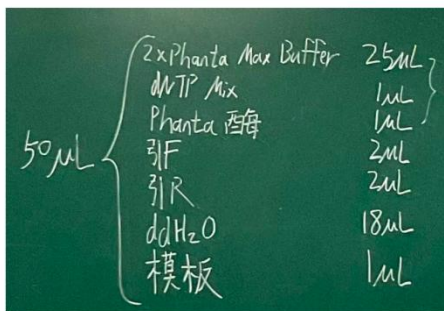 2xPhanta Max Buffer 25μL
dNTP Mix 1μL
Phanta 酶 1μL
50μL
引F 2μL
引R 2μL
ddH₂O 18μL
模板 1μL